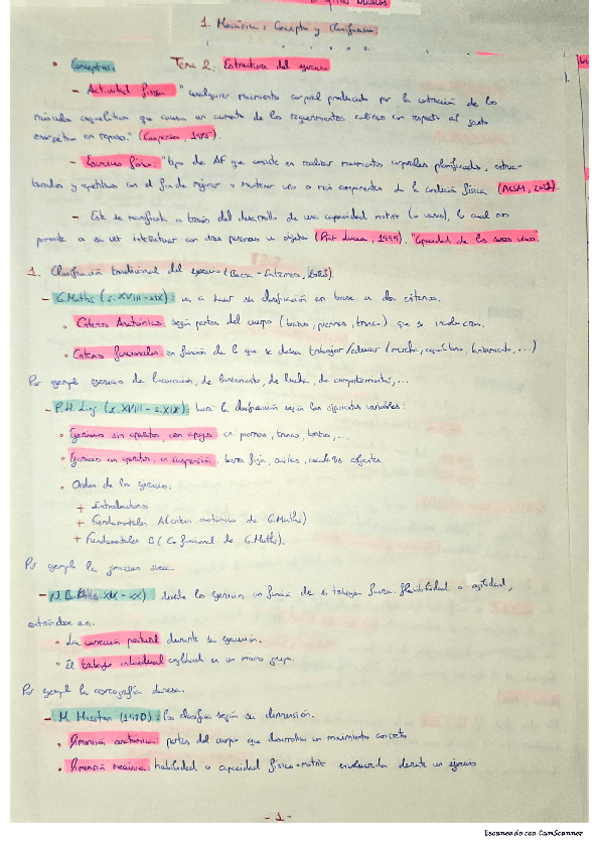 1. Mecánica: Concepto y Clasificación
• Conceptos. Tema 2. Estructura del ejercicio
- Actividad física: "cualquier movimiento corporal producido por la contracción de los
músculos esqueléticos que causa un aumento de los requerimientos calóricos con respecto al gasto
energético en reposo." (Caspersen, 1985).
- Ejercicio físico: "tipo de AF que consiste en realizar movimientos corporales planificados, estruc-
turados y repetitivos con el fin de mejorar o mantener uno o más componentes de la condición física (ACSM,
- Este se manifiesta a través del desarrollo de una capacidad motriz (o varias), lo cual nos
permite a su vez interactuar con otras personas u objetos (1999). "Capacidad de los seres vivos".
1. Clasificación tradicional del ejercicio
- G.Muths (s. XVIII - XIX): va a hacer su clasificación en base a dos criterios.
• Criterio Anatómico: según partes del cuerpo (brazos, piernas, tronco) que se involucran.
• Criterio funcional: en función de lo que se desea trabajar/educar (marcha, equilibrio, lanzamiento, ...)
Por ejemplo ejercicios de locomoción, de lanzamiento, de lucha, de comportamientos, ...
- P.H. Ling (s. XVIII - s. XIX): hace la clasificación según las siguientes variables:
• Ejercicios sin aparatos, con apoyos en piernas, tronco, brazos, ...
• Ejercicios en aparatos, en suspensión: barra fija, anillas, escaleras
• Orden de los ejercicios.
+ Introductorios
+ Fundamentales A (criterio anatómico de G.Muths)
+ Fundamentales B (Co funcional de G.Muths).
Por ejemplo la gimnasia sueca.
XIX - XX) los ejercicios en función de si trabajan fuerza, flexibilidad o agilidad,
• La corrección postural durante su ejecución.
• El trabajo individual en un mismo grupo.
Por ejemplo la coreografía danesa.
- M. los clasifica según su dimensión.
• Dimensión anatómica: partes del cuerpo que desarrollan un movimiento concreto
• Dimensión mecánica: habilidad o capacidad físico-motriz involucrada durante un ejercicio
- 1 -
Escaneado con CamScanner